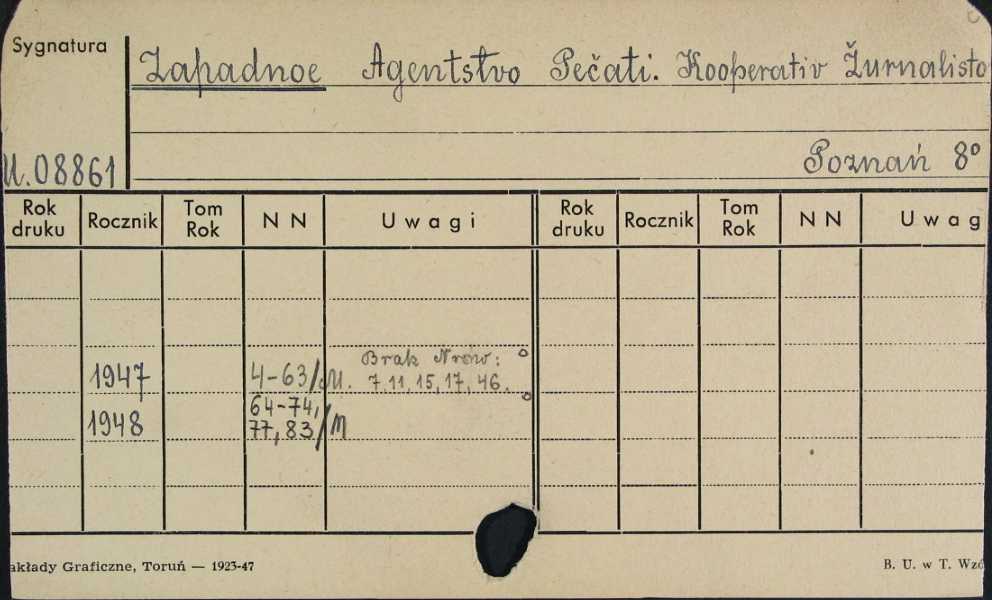 Sygnatura
Zapadnoe Agentstvo Pečati. Kooperativ Žurnalisto
Poznań 8°
U.08861
Rok druku Rocznik Tom Rok N N Uwagi Rok druku Rocznik Tom Rok N N Uwag
Brak Nrów:
1947 4-63/M. 7, 11, 15, 17, 46.
64-74,
1948 77, 83/M
akłady Graficzne, Toruń — 1923-47 B. U. w T. Wzó